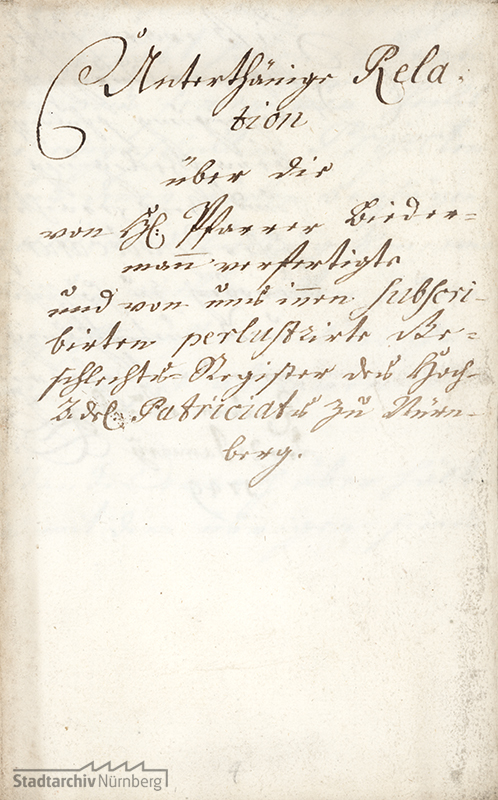 Unterthänige Rela-
tion
über die
von H. Pfarrer Bieder-
mañ verfertigte
und von uns innen subscri-
birten perlustrirte Ge-
schlechts-Register des Hoch-
Adel. Patriciats zu Nürn-
berg.
Stadtarchiv Nürnberg